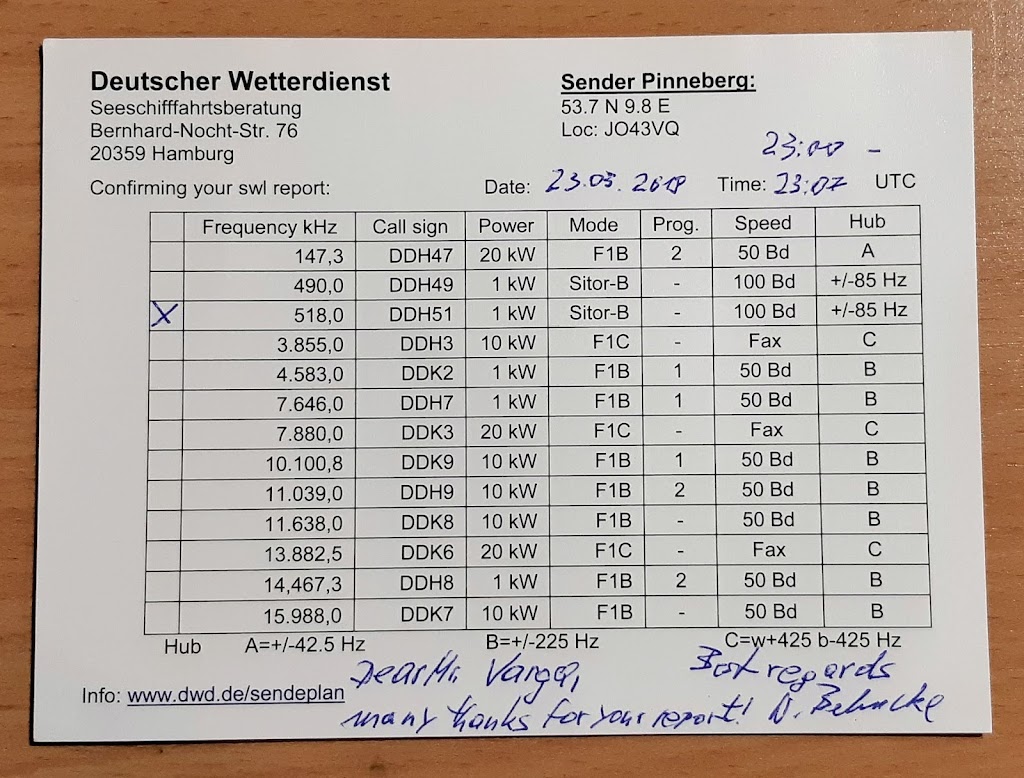 Deutscher Wetterdienst
Seeschifffahrtsberatung
Bernhard-Nocht-Str. 76
20359 Hamburg
Sender Pinneberg:
53.7 N 9.8 E
Loc: JO43VQ
23:00 -
Confirming your swl report: Date: 23.05.2018 Time: 23:07 UTC
Frequency kHz Call sign Power Mode Prog. Speed Hub
147,3 DDH47 20 kW F1B 2 50 Bd A
490,0 DDH49 1 kW Sitor-B - 100 Bd +/-85 Hz
X 518,0 DDH51 1 kW Sitor-B - 100 Bd +/-85 Hz
3.855,0 DDH3 10 kW F1C - Fax C
4.583,0 DDK2 1 kW F1B 1 50 Bd B
7.646,0 DDH7 1 kW F1B 1 50 Bd B
7.880,0 DDK3 20 kW F1C - Fax C
10.100,8 DDK9 10 kW F1B 1 50 Bd B
11.039,0 DDH9 10 kW F1B 2 50 Bd B
11.638,0 DDK8 10 kW F1B - 50 Bd B
13.882,5 DDK6 20 kW F1C - Fax C
14,467,3 DDH8 1 kW F1B 2 50 Bd B
15.988,0 DDK7 10 kW F1B - 50 Bd B
Hub A=+/-42.5 Hz B=+/-225 Hz C=w+425 b-425 Hz
Info: www.dwd.de/sendeplan
Dear Mr. Varga,
many thanks for your report!
Best regards
N. Behncke